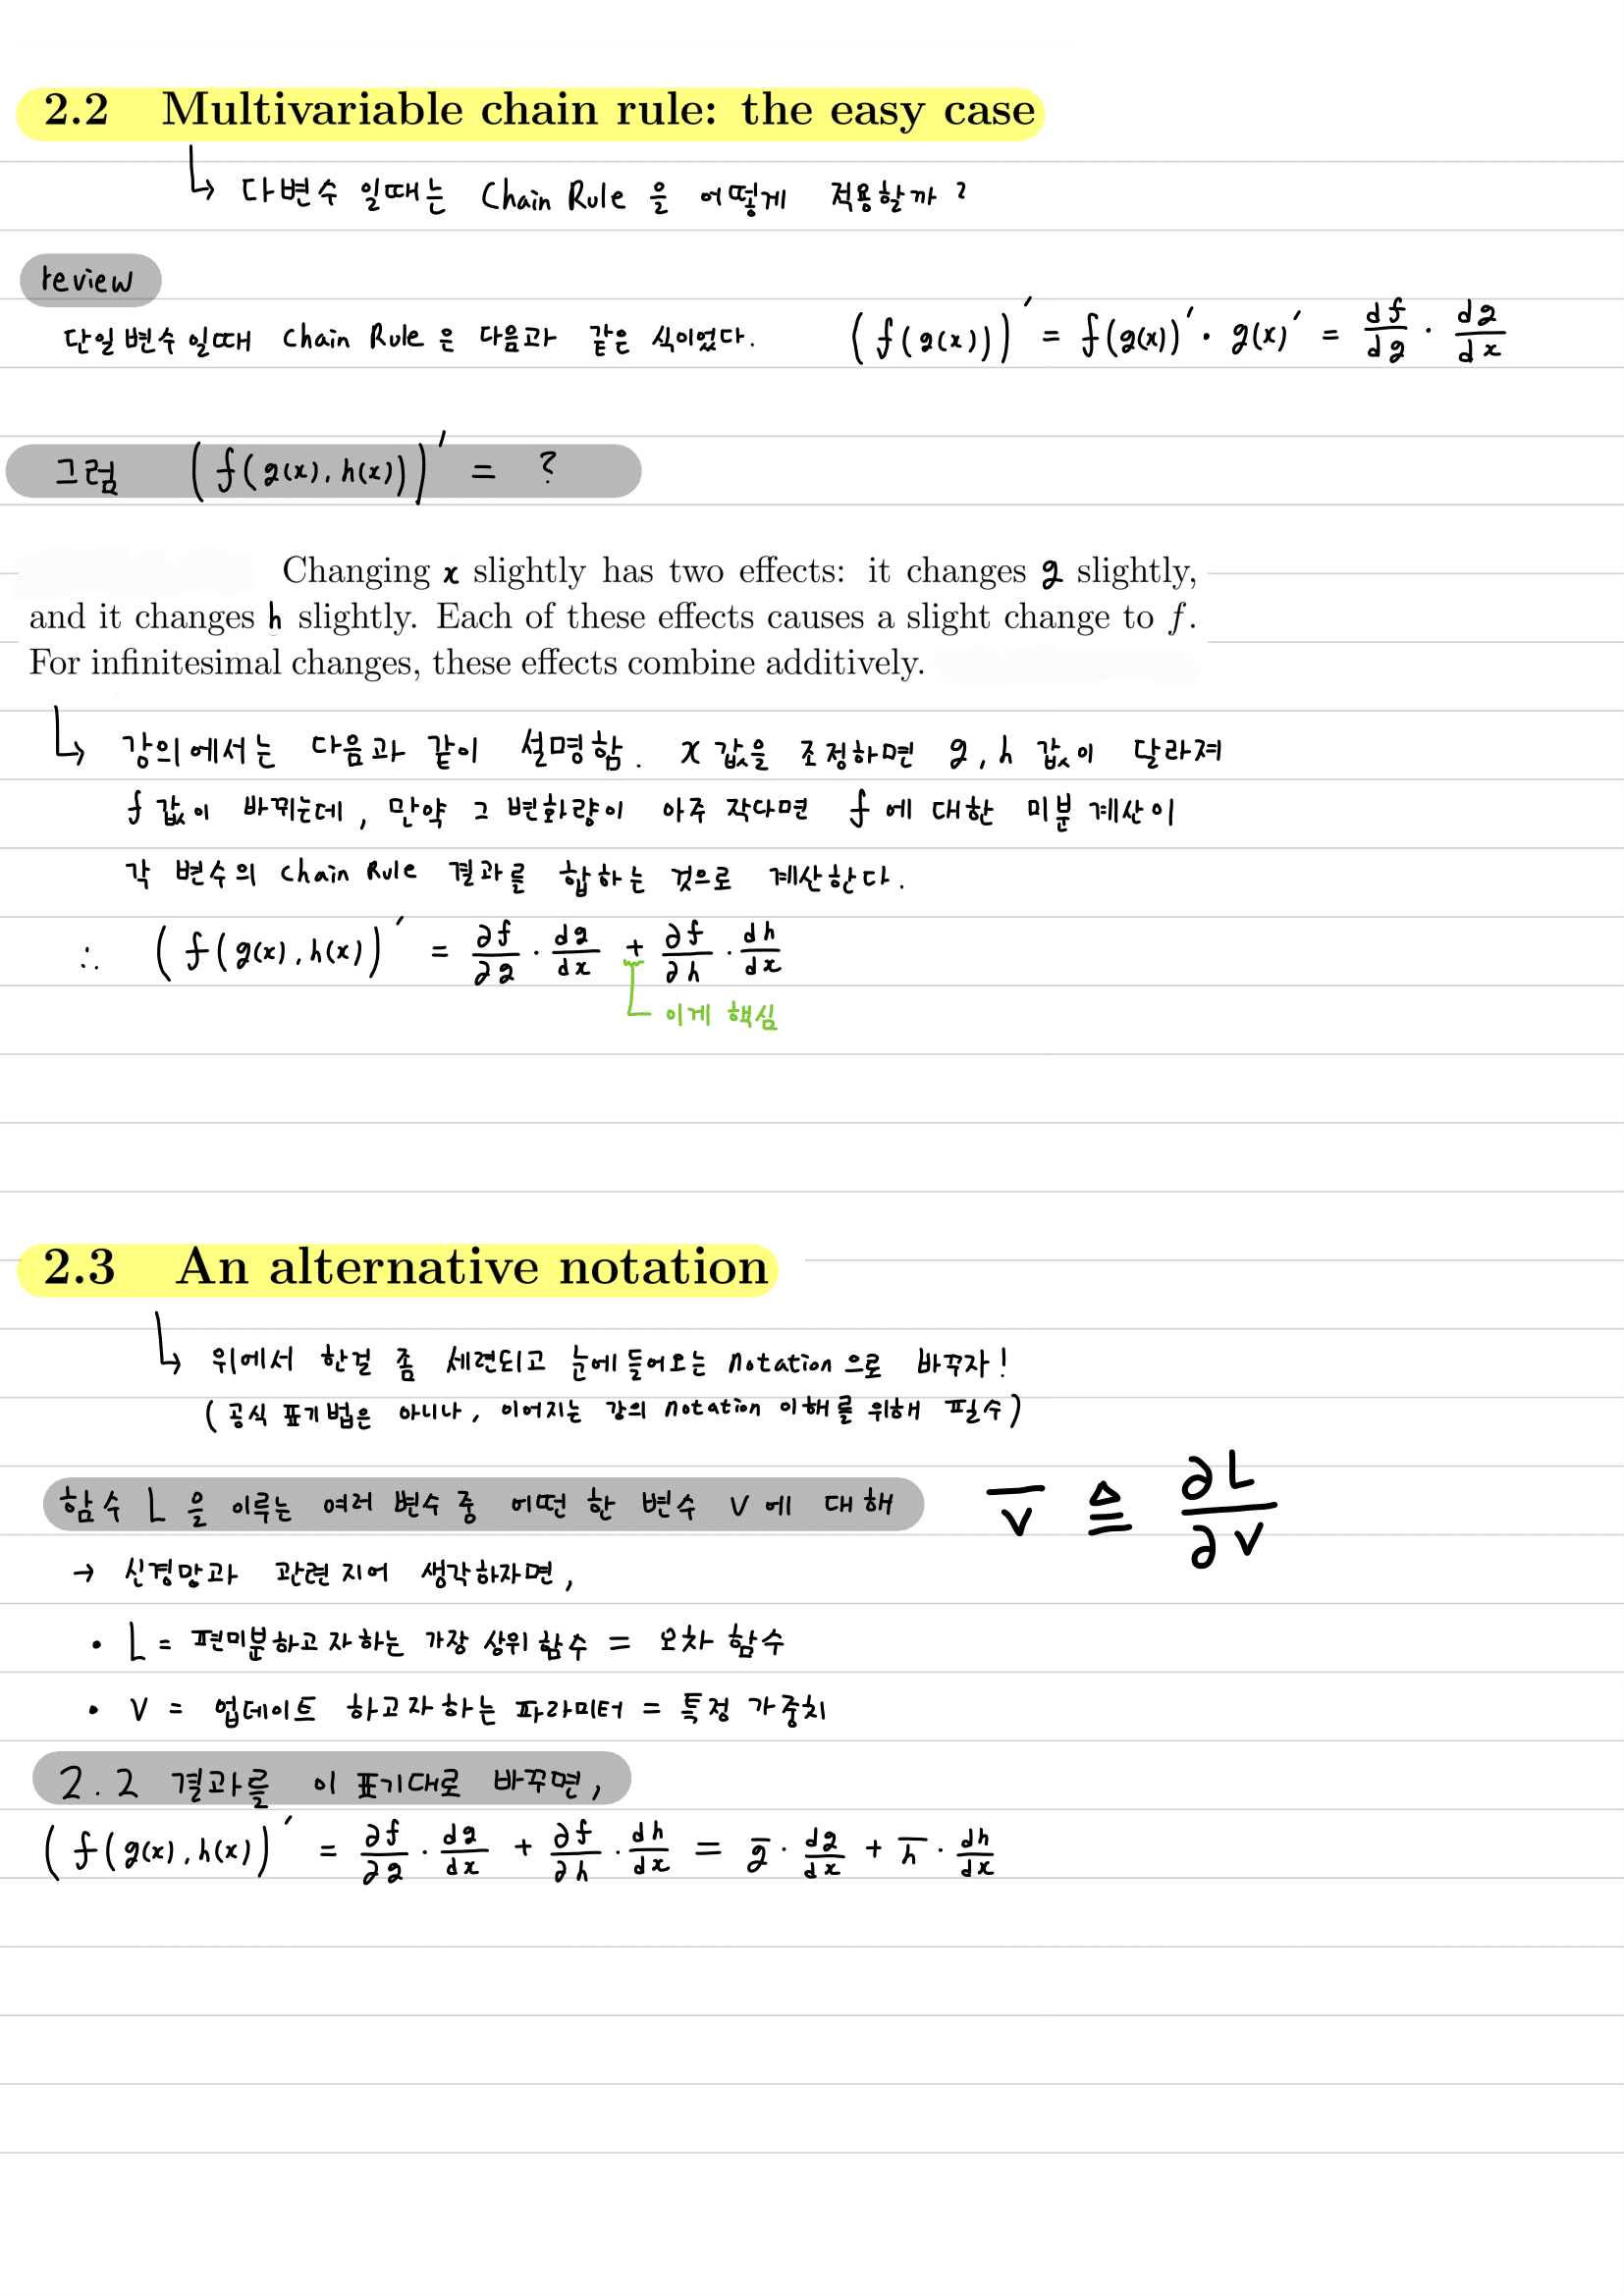 2.2 Multivariable chain rule: the easy case
↳ 다변수 일때는 Chain Rule 을 어떻게 적용할까?
review
단일 변수 일때 Chain Rule 은 다음과 같은 식이었다. (f(g(x)))' = f(g(x))' · g(x)' = df/dg · dg/dx
그럼 (f(g(x), h(x)))' = ?
Changing x slightly has two effects: it changes g slightly,
and it changes h slightly. Each of these effects causes a slight change to f.
For infinitesimal changes, these effects combine additively.
↳ 강의에서는 다음과 같이 설명함. x 값을 조정하면 g, h 값이 달라져
f 값이 바뀌는데, 만약 그 변화량이 아주 작다면 f 에 대한 미분 계산이
각 변수의 Chain Rule 결과를 합하는 것으로 계산한다.
∴ (f(g(x), h(x))' = ∂f/∂g · dg/dx + ∂f/∂h · dh/dx
이게 핵심
2.3 An alternative notation
↳ 위에서 한걸 좀 세련되고 눈에 들어오는 notation 으로 바꾸자!
(공식 표기법은 아니나, 이어지는 강의 notation 이해를 위해 필수)
함수 L 을 이루는 여러 변수 중 어떤 한 변수 v 에 대해 v̅ ≜ ∂L/∂v
→ 신경망과 관련 지어 생각하자면,
• L = 편미분하고자 하는 가장 상위 함수 = 오차 함수
• v = 업데이트 하고자 하는 파라미터 = 특정 가중치
2.2 결과를 이 표기대로 바꾸면,
(f(g(x), h(x))' = ∂f/∂g · dg/dx + ∂f/∂h · dh/dx = g̅ · dg/dx + h̅ · dh/dx